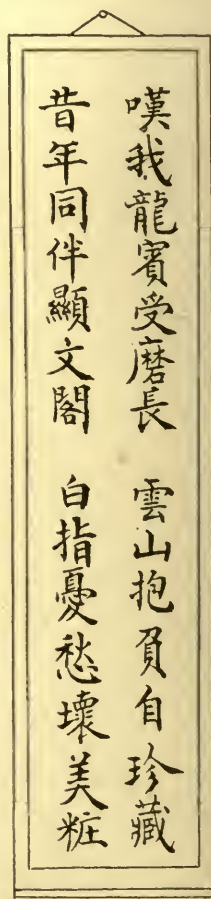 嘆我龍賓受磨長　雲山抱負自珍藏
昔年同伴顯文閣　白指憂愁壞美粧